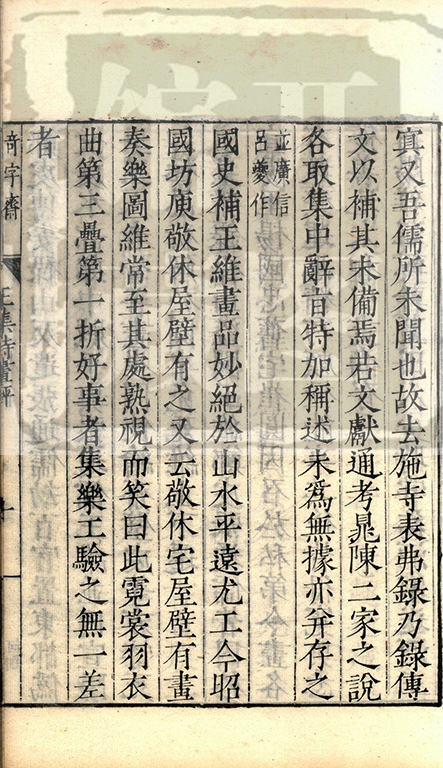 寘又吾儒所未聞也故去施寺表弗錄乃錄傳
文以補其未備焉若文獻通考晁陳二家之說
各取集中辭旨特加稱述未為無據亦幷存之
並廣信
呂夔作
國史補王維畫品妙絕於山水平遠尤工今昭
國坊庾敬休屋壁有之又云敬休宅屋壁有畫
奏樂圖維常至其處熟視而笑曰此霓裳羽衣
曲第三疊第一折好事者集樂工驗之無一差
者
奇字齋